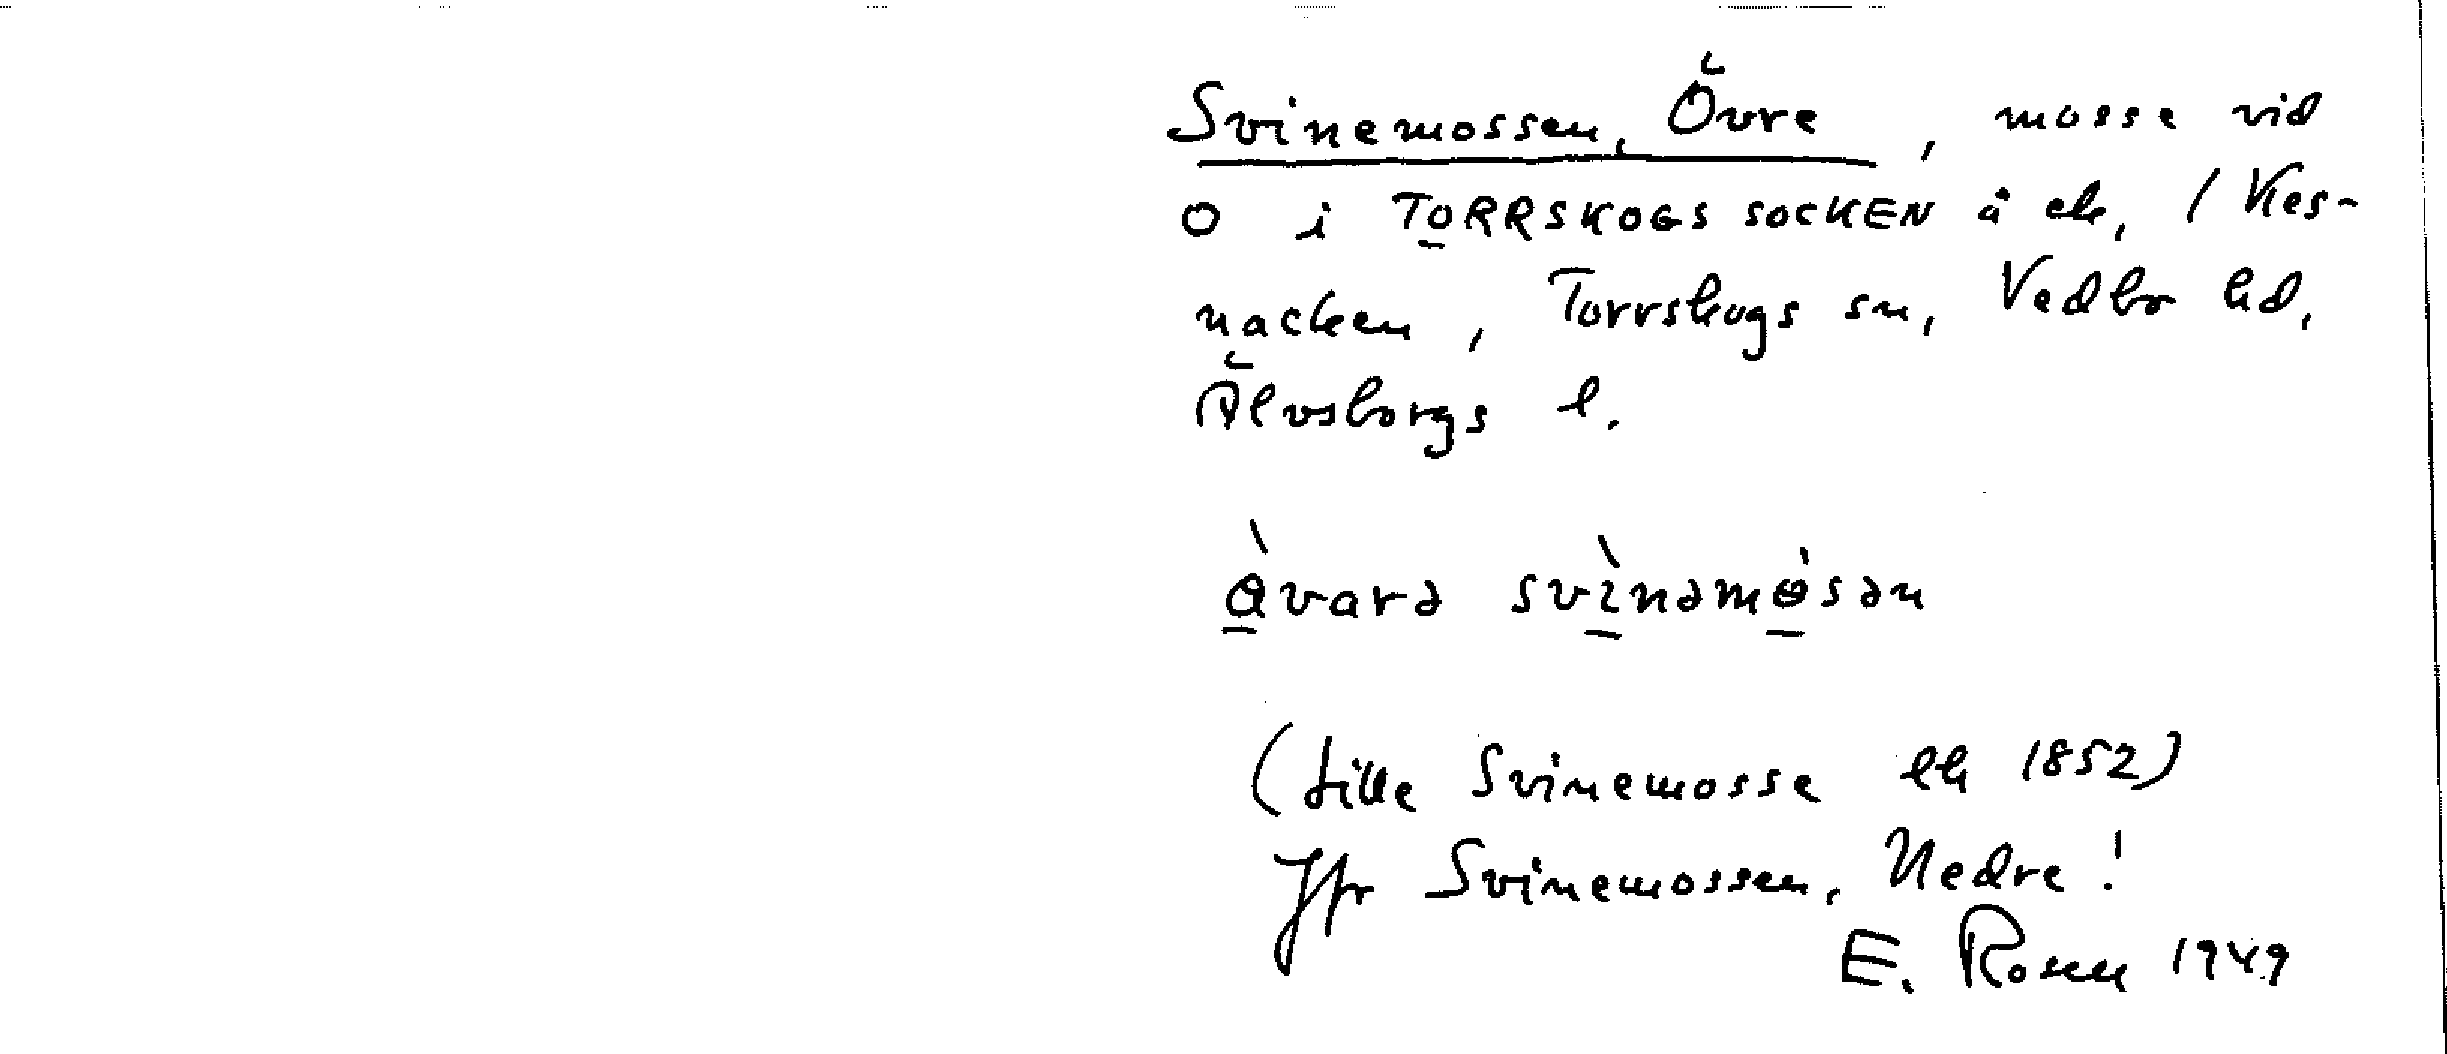 Svinemossen, Övre, mosse vid
O i TORRSKOGS SOCKEN å ek, / Kes-
nacken, Torrskogs sn, Vedbo hd,
Älvsborgs l.
ɵ̀varə svìnəmɵ́sən
(lille Svinemosse lh 1852)
Jfr Svinemossen, Nedre!
E. Rosen 1949